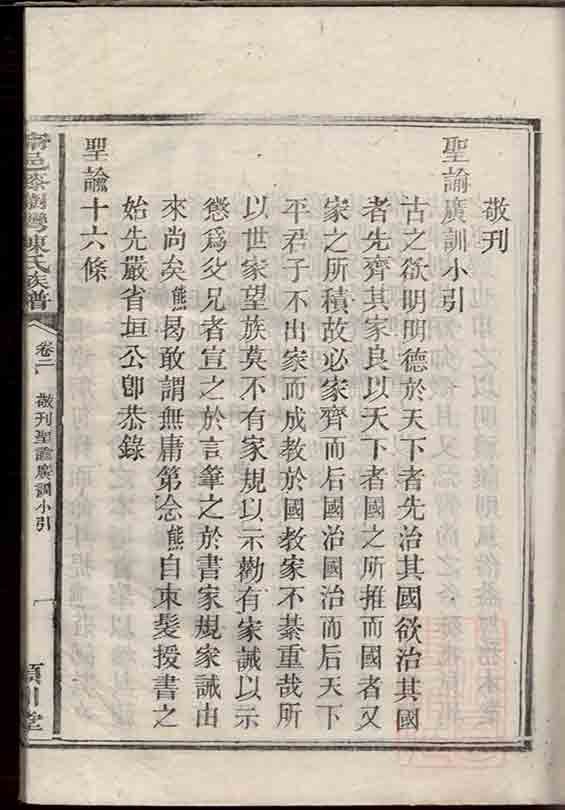 敬刊
聖諭廣訓小引
古之欲明明德於天下者先治其國欲治其國
者先齊其家良以天下者國之所推而國者又
家之所積故必家齊而后國治國治而后天下
平君子不出家而成教於國教家不綦重哉所
以世家望族莫不有家規以示勸有家誡以示
懲爲父兄者宣之於言筆之於書家規家誡由
來尚矣熊曷敢謂無庸第念熊自束髮授書之
始先嚴省垣公卽恭錄
聖諭十六條
陳氏族譜
卷二
敬刊聖諭廣訓小引
一
潁川堂